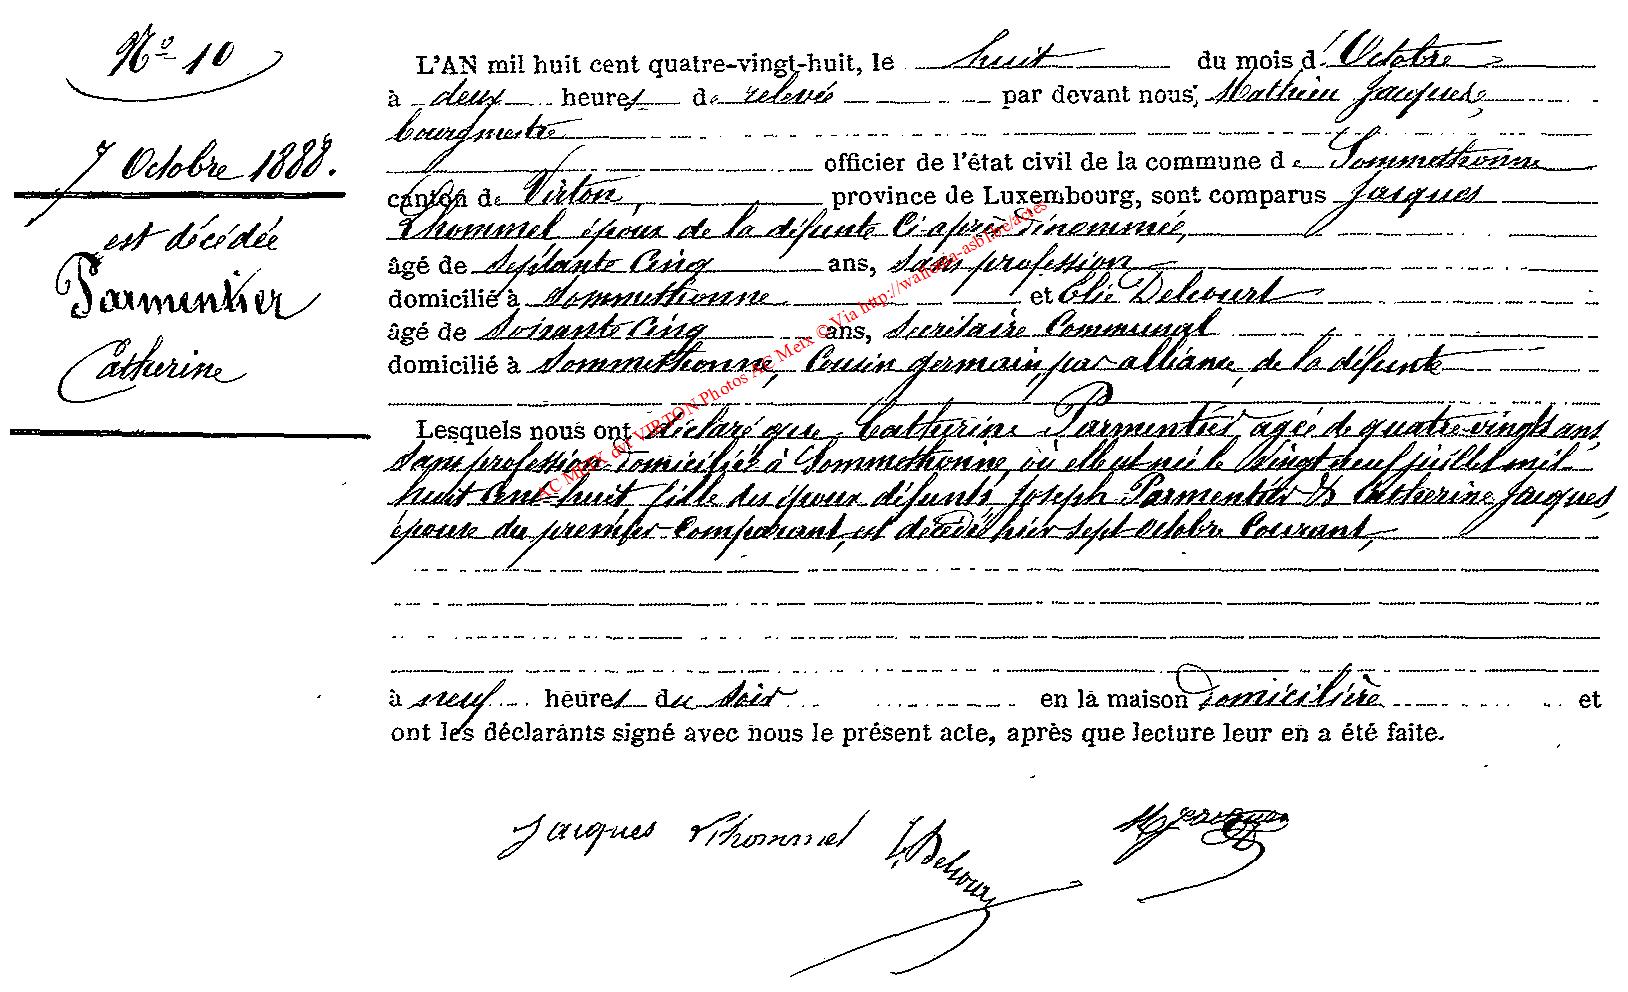 Nº 10
7 Octobre 1888.
est décédée
Parmentier
Catherine
L'AN mil huit cent quatre-vingt-huit, le huit du mois d'Octobre
à deux heures de relevée par devant nous, Mathieu Jacques,
bourgmestre
officier de l'état civil de la commune de Sommethonne
canton de Virton, province de Luxembourg, sont comparus Jacques
Lhommel, époux de la défunte ci après dénommée,
âgé de septante cinq ans, sans profession
domicilié à Sommethonne et Elie Delcourt
âgé de soixante cinq ans, secrétaire communal
domicilié à Sommethonne, cousin germain, par alliance, de la défunte
Lesquels nous ont déclaré que Catherine Parmentier agée de quatre-vingts ans,
sans profession domiciliée à Sommethonne, où elle est née le vingt neuf juillet mil
huit cent huit, fille des époux défunts, Joseph Parmentier & Catherine Jacques,
épouse du premier comparant, est décédée hier sept octobre courant,
à neuf heures du soir en la maison domicilière et
ont les déclarants signé avec nous le présent acte, après que lecture leur en a été faite.
Jacques Lhommel E. Delcourt M Jacques
AC MEIX dvt VIRTON Photos AC Meix © Via http://wallonia-asbl.be/actes